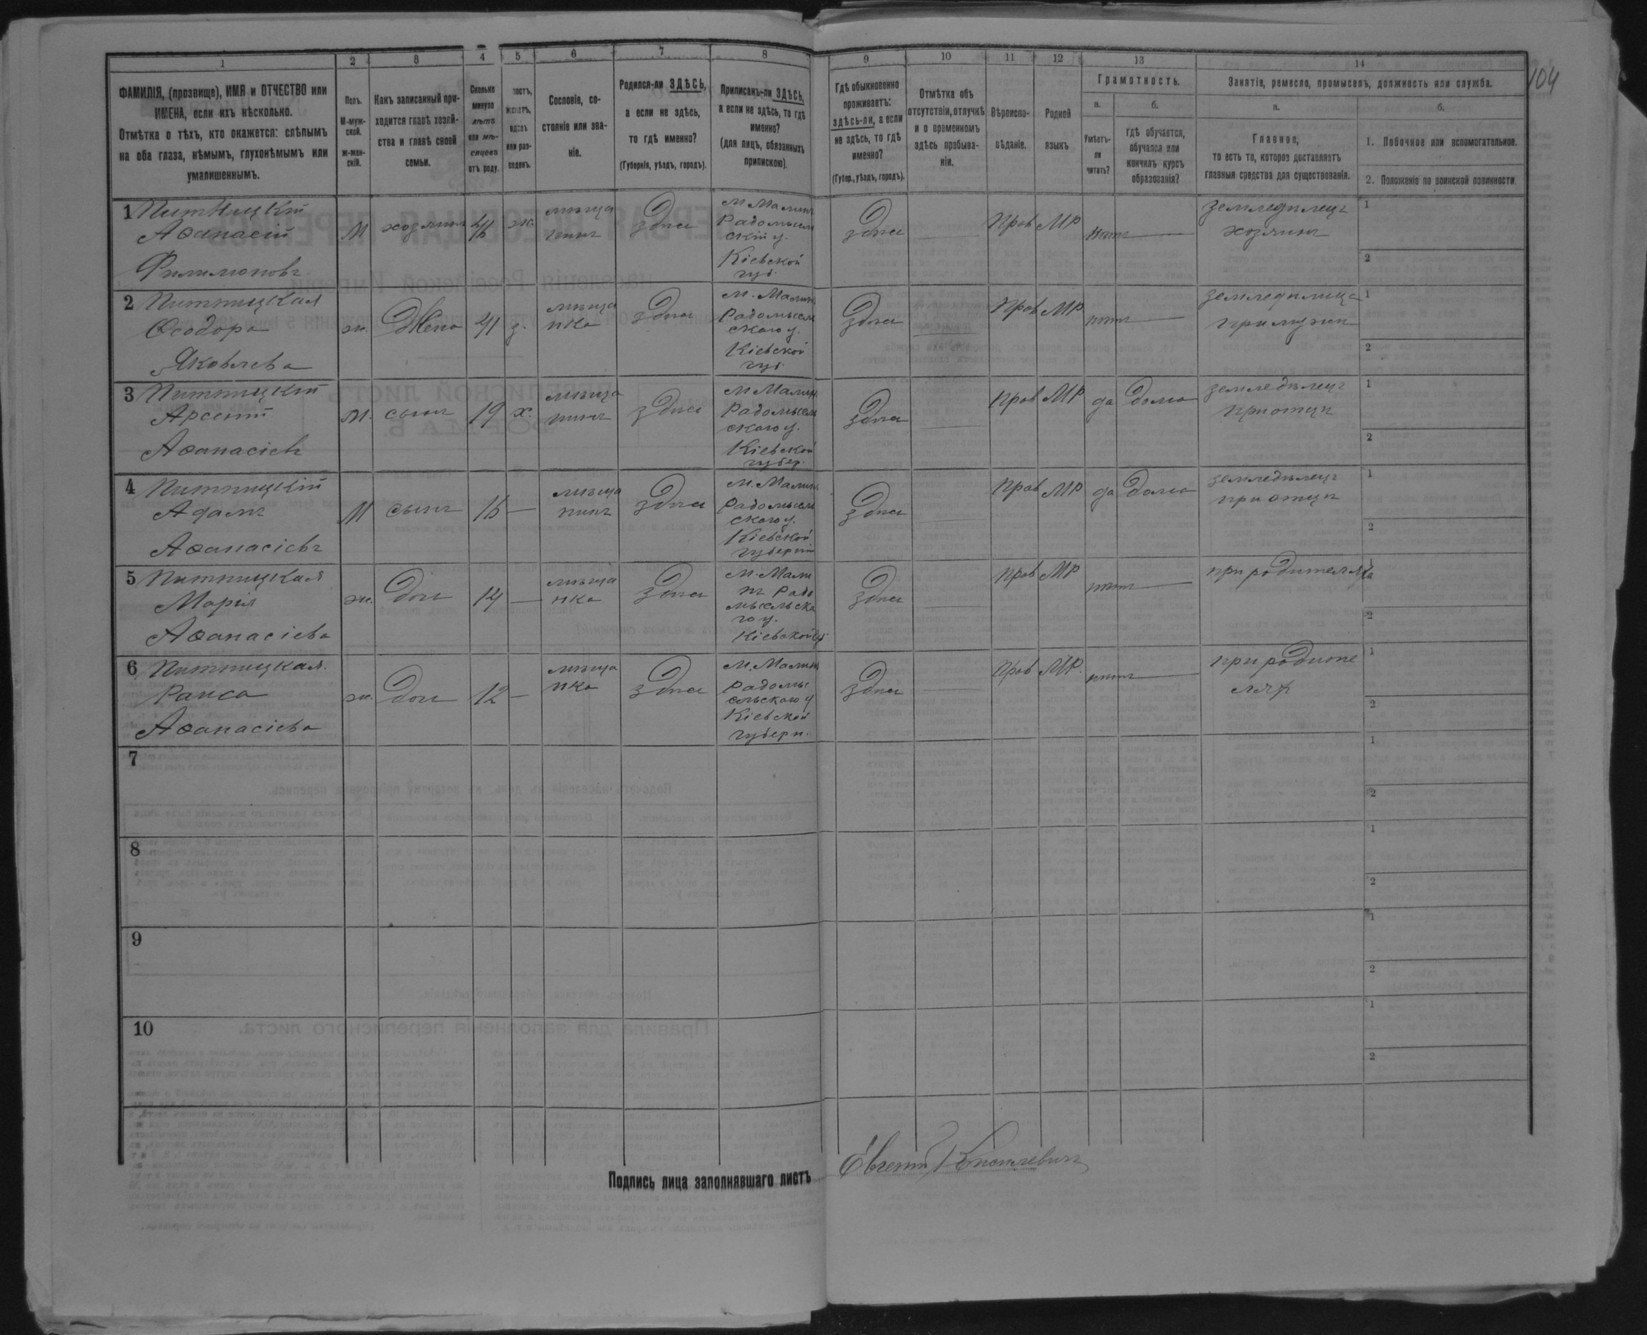 104
1
2
3
4
5
6
7
8
9
10
11
12
13
14
ФАМИЛІЯ, (прозвище), ИМЯ и ОТЧЕСТВО или
ИМЕНА, если ихъ нѣсколько.
Отмѣтка о тѣхъ, кто окажется: слѣпымъ
на оба глаза, нѣмымъ, глухонѣмымъ или
умалишеннымъ.
Полъ.
М-муж-
ской.
ж-жен-
скій.
Какъ записанный при-
ходится главѣ хозяй-
ства и главѣ своей
семьи.
Сколько
минуло
лѣтъ
или мѣ-
сяцевъ
отъ роду.
Сословіе, со-
стояніе или зва-
ніе.
Родился-ли ЗДѢСЬ,
а если не здѣсь,
то гдѣ именно?
(Губернія, уѣздъ, городъ).
Приписанъ-ли ЗДѢСЬ,
а если не здѣсь, то гдѣ
именно?
(для лицъ, обязанныхъ
припискою).
Гдѣ обыкновенно
проживаетъ:
здѣсь-ли, а если
не здѣсь, то гдѣ
именно?
(Губер., уѣздъ, городъ).
Отмѣтка объ
отсутствіи, отлучкѣ
и о временномъ
здѣсь пребыва-
ніи.
Вѣроиспо-
вѣданіе.
Родной
языкъ
Грамотность.
а.
Умѣетъ-
ли
читать?
б.
гдѣ обучается,
обучался или
кончилъ курсъ
образованія?
Занятіе, ремесло, промыселъ, должность или служба.
а.
Главное,
то есть то, которое доставляетъ
главныя средства для существованія.
б.
1. Побочное или вспомогательное.
2. Положеніе по воинской повинности
1 Пятницкій
Аѳанасій
Филимоновъ
М
хозяинъ
46
ж.
мѣща
нинъ
Здѣсь
м. Малинъ
Радомысль
скій у.
Кіевской
губ.
Здѣсь
Прав
МР
нѣтъ
земледѣлецъ
хозяинъ
1
2
2 Пятницкая
Ѳеодора
Яковлева
ж.
Жена
41
з.
мѣща
нка
здѣсь
м. Малинъ
Радомысль
скаго у.
Кіевской
губ.
Здѣсь
Прав
МР
нѣтъ
земледѣлица
при мужѣ
1
2
3 Пятницкій
Арсеній
Аѳанасіевъ
М.
сынъ
19
х.
мѣща
нинъ
здѣсь
м. Малинъ
Радомысль
скаго у.
Кіевской
губер.
Здѣсь
Прав
МР
да
дома
земледѣлецъ
при отцѣ
1
2
4 Пятницкій
Адамъ
Аѳанасіевъ
М
сынъ
16
мѣща
нинъ
здѣсь
м. Малинъ
Радомысль
скаго у.
Кіевской
губерніи
Здѣсь
Прав
МР
да
дома
земледѣлецъ
при отцѣ
1
2
5 Пятницкая
Марія
Аѳанасіева
ж.
Доч
14
мѣща
нка
Здѣсь
м. Мали
нъ Радо
мысльска
го у.
Кіевской г.
Здѣсь
Прав
МР
нѣтъ
при родителяхъ
1
2
6 Пятницкая
Раиса
Аѳанасіева
ж.
Доч
12
мѣща
нка
здѣсь
м. Малинъ
Радомы
сльскаго у
Кіевской
губерн.
Здѣсь
Прав
МР.
нѣтъ
при родите
ляхъ
1
2
7
1
2
8
1
2
9
1
2
10
1
2
Подпись лица заполнявшаго листъ
Евгеній